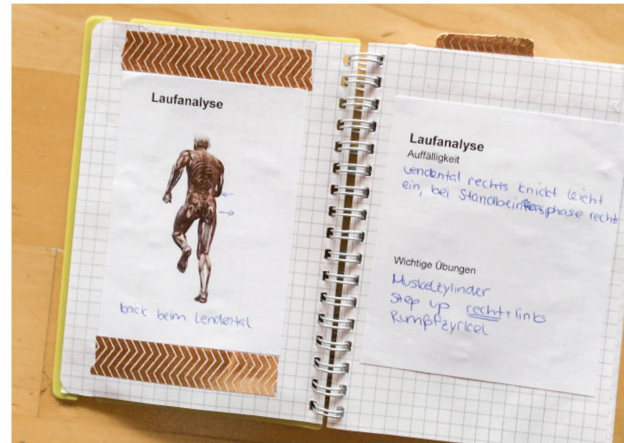 Laufanalyse
knick beim Lendental
Laufanalyse
Auffälligkeit
Lendental rechts knickt leicht
ein, bei Standbeinphase recht
Wichtige Übungen
Muskelzylinder
Step up recht+links
Rumpfzyrkel